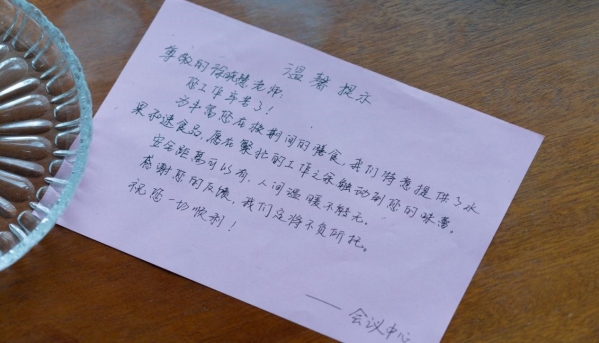 温馨提示
尊敬的徐晓慧老师:
您工作辛苦了!
为丰富您在按制间的膳食,我们特意提供了水
果和速食品,愿在繁忙的工作之余触动到您的味蕾。
安全距离可以有,人间温暖不能无。
感谢您的反馈,我们定将不负所托。
祝您一切顺利!
——会议中心